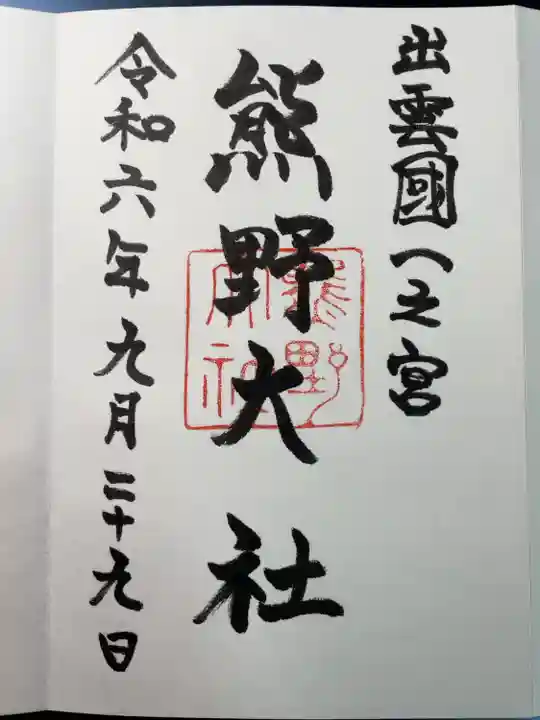 出雲國一之宮
熊野大社
熊野
大社
令和六年九月二十九日